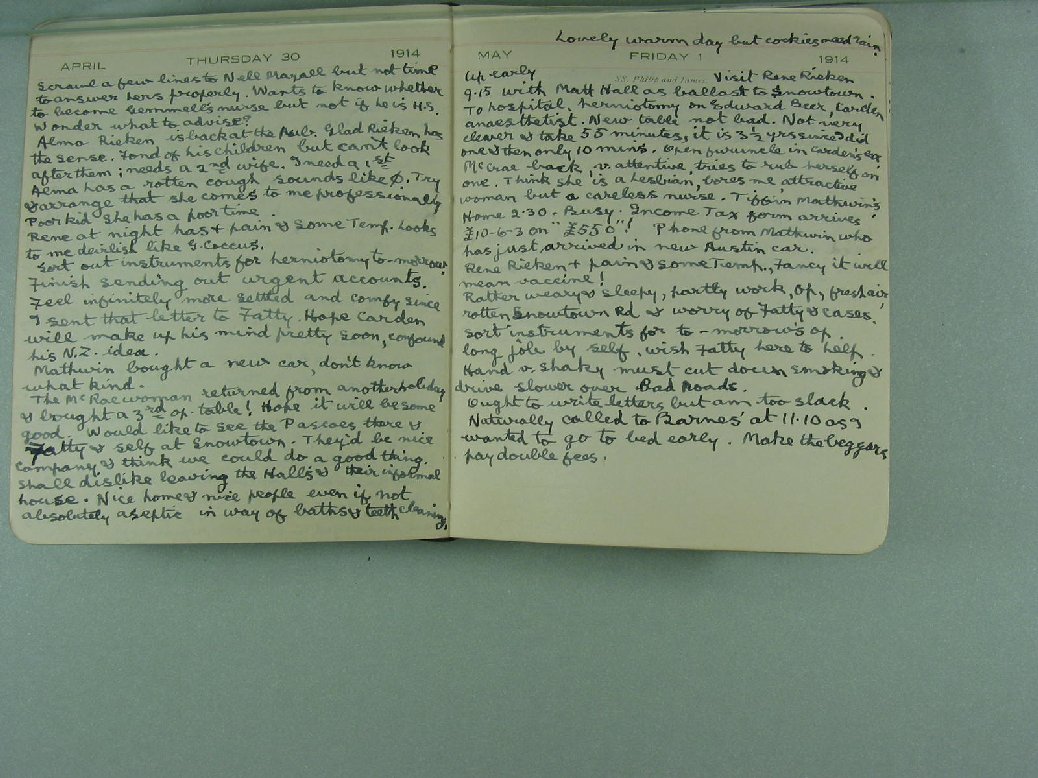 APRIL THURSDAY 30 1914
Scrawl a few lines to Nell Mayall but not time
to answer hers properly. Wants to know whether
to become Gemmell's nurse but not if he is H.S.
Wonder what to advise?
Alma Rieken is back at the Pub. Glad Rieken has
the sense. Fond of his children but can't look
after them; needs a 2nd wife. I need a 1st
Alma has a rotten cough sounds like φ. Try
& arrange that she comes to me professionally
Poor kid she has a poor time.
Rene at night has + pain & some Temp. Looks
to me devilish like G. coccus.
Sort out instruments for herniotomy to-morrow
Finish sending out urgent accounts.
Feel infinitely more settled and comfy since
I sent that letter to Fatty. Hope Carden
will make up his mind pretty soon, confound
his N.Z. idea.
Mathwin bought a new car, don't know
what kind.
The McRae woman returned from another holiday
& brought a 3rd op. table! Hope it will be some
good. Would like to see the Pascoes there &
Fatty & self at Snowtown. They'd be nice
company & think we could do a good thing.
shall dislike leaving the Halls & their informal
house. Nice home & nice people even if not
absolutely aseptic in way of baths & teeth cleaning.
Lovely warm day but cockies need rain.
MAY FRIDAY 1 1914
SS. Philip and James
Up early Visit Rene Rieken
9.15 with Matt Hall as ballast to Snowtown.
To hospital, herniotomy on Edward Beer, Carden
anaesthetist. New table not bad. Not very
clever & take 55 minutes, it is 3½ yrs since I did
one & then only 10 mins. Open furuncle in Carden's ear
McCrae back, v. attentive, tries to rub herself on
one. Think she is a Lesbian, bores me, attractive
woman but a careless nurse. Tiffin Mathwin's
Home 2.30. Busy. Income Tax form arrives
£10-6-3 on "£550"! Phone from Mathwin who
has just arrived in new Austin car.
Rene Rieken + pain & some Temp., Fancy it will
mean vaccine!
Rather weary & sleepy, partly work, op, fresh air
rotten Snowtown Rd & worry of Fatty & cases.
Sort instruments for to-morrow's op.
long job by self, wish Fatty here to help.
Hand v. shaky must cut down smoking &
drive slower over Bad Roads.
Ought to write letters but am too slack.
Naturally called to Barnes' at 11.10 as I
wanted to go to bed early. Make the beggars
pay double fees.